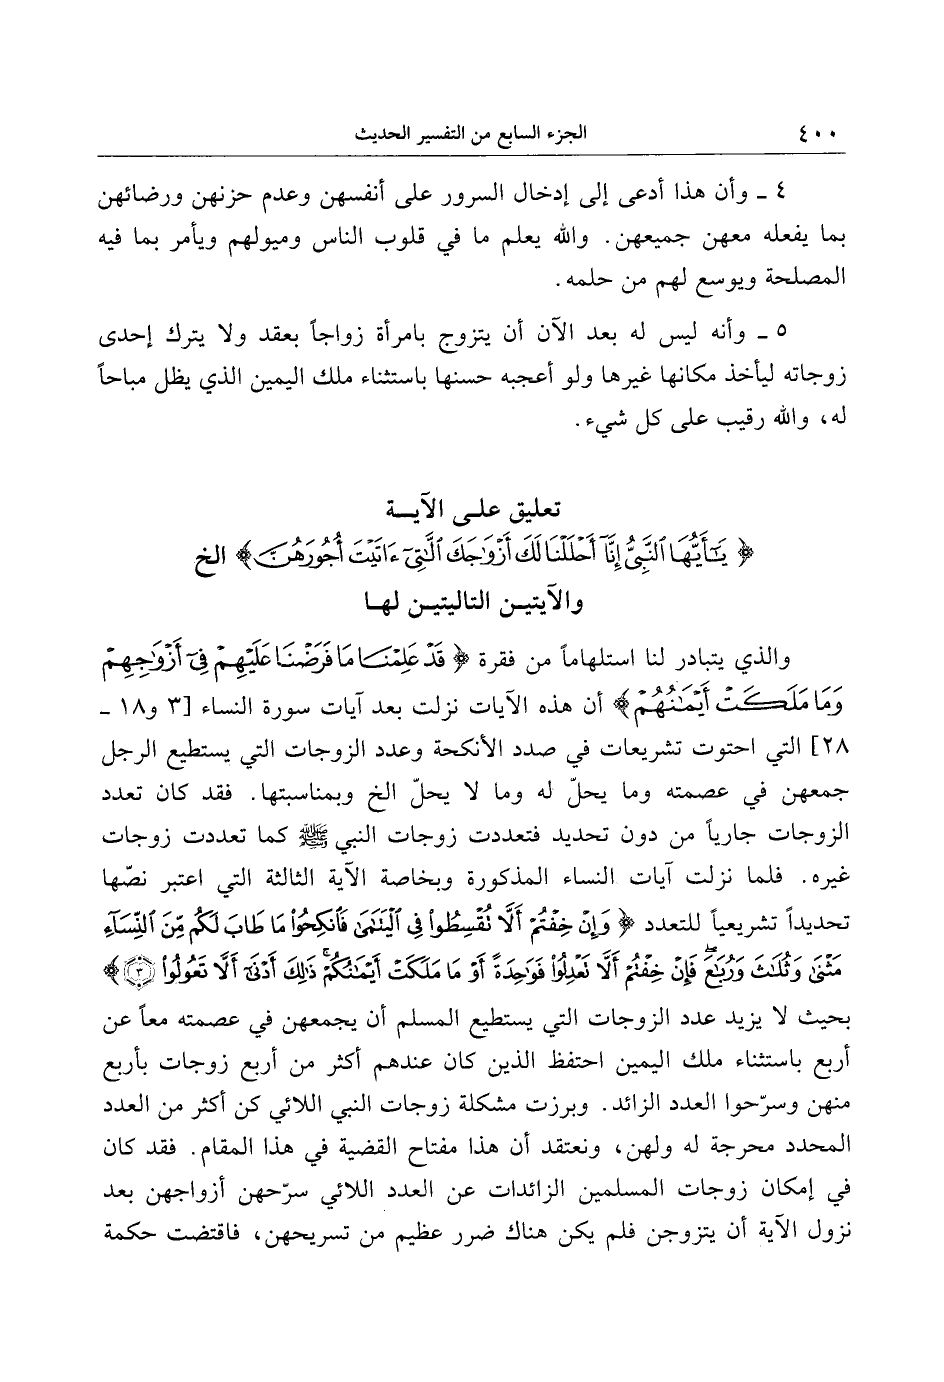 ٤٠٠ الجزء السابع من التفسير الحديث
٤ ـ وأن هذا أدعى إلى إدخال السرور على أنفسهن وعدم حزنهن ورضائهن
بما يفعله معهن جميعهن. والله يعلم ما في قلوب الناس وميولهم ويأمر بما فيه
المصلحة ويوسع لهم من حلمه.
٥ ـ وأنه ليس له بعد الآن أن يتزوج بامرأة زواجاً بعقد ولا يترك إحدى
زوجاته ليأخذ مكانها غيرها ولو أعجبه حسنها باستثناء ملك اليمين الذي يظل مباحاً
له، والله رقيب على كل شيء.
تعليق على الآيـــة
﴿ يَٰٓأَيُّهَا ٱلنَّبِيُّ إِنَّآ أَحْلَلْنَا لَكَ أَزْوَٰجَكَ ٱلَّٰتِيٓ ءَاتَيْتَ أُجُورَهُنَّ ﴾ الخ
والآيتيـن التاليتيـن لهـا
والذي يتبادر لنا استلهاماً من فقرة ﴿ قَدْ عَلِمْنَا مَا فَرَضْنَا عَلَيْهِمْ فِيٓ أَزْوَٰجِهِمْ
وَمَا مَلَكَتْ أَيْمَٰنُهُمْ ﴾ أن هذه الآيات نزلت بعد آيات سورة النساء [٣ و١٨ ـ
٢٨] التي احتوت تشريعات في صدد الأنكحة وعدد الزوجات التي يستطيع الرجل
جمعهن في عصمته وما يحلّ له وما لا يحلّ الخ وبمناسبتها. فقد كان تعدد
الزوجات جارياً من دون تحديد فتعددت زوجات النبي ﷺ كما تعددت زوجات
غيره. فلما نزلت آيات النساء المذكورة وبخاصة الآية الثالثة التي اعتبر نصّها
تحديداً تشريعياً للتعدد ﴿ وَإِنْ خِفْتُمْ أَلَّا تُقْسِطُوا۟ فِي ٱلْيَتَٰمَىٰ فَٱنكِحُوا۟ مَا طَابَ لَكُم مِّنَ ٱلنِّسَآءِ
مَثْنَىٰ وَثُلَٰثَ وَرُبَٰعَ ۖ فَإِنْ خِفْتُمْ أَلَّا تَعْدِلُوا۟ فَوَٰحِدَةً أَوْ مَا مَلَكَتْ أَيْمَٰنُكُمْ ۚ ذَٰلِكَ أَدْنَىٰٓ أَلَّا تَعُولُوا۟ ٣ ﴾
بحيث لا يزيد عدد الزوجات التي يستطيع المسلم أن يجمعهن في عصمته معاً عن
أربع باستثناء ملك اليمين احتفظ الذين كان عندهم أكثر من أربع زوجات بأربع
منهن وسرّحوا العدد الزائد. وبرزت مشكلة زوجات النبي اللائي كن أكثر من العدد
المحدد محرجة له ولهن، ونعتقد أن هذا مفتاح القضية في هذا المقام. فقد كان
في إمكان زوجات المسلمين الزائدات عن العدد اللائي سرّحهن أزواجهن بعد
نزول الآية أن يتزوجن فلم يكن هناك ضرر عظيم من تسريحهن، فاقتضت حكمة